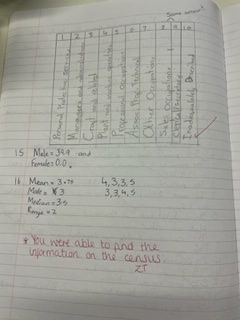 Same amount
1 2 3 4 5 6 7 8 9 10
Personal
Managers and administration
Craft and related
Plant and machine operatives
Professional occupation
Assoc. Prof. Technical
Other Occupations
Sales Occupations
Inadequately Described
15 Male = 39.9 and
Female = 0.0.
16 Mean = 3.75 4, 3, 3, 5
Mode = 3 3, 3, 4, 5
Median = 3.5
Range = 2
* You were able to find the
information on the census.
ZT